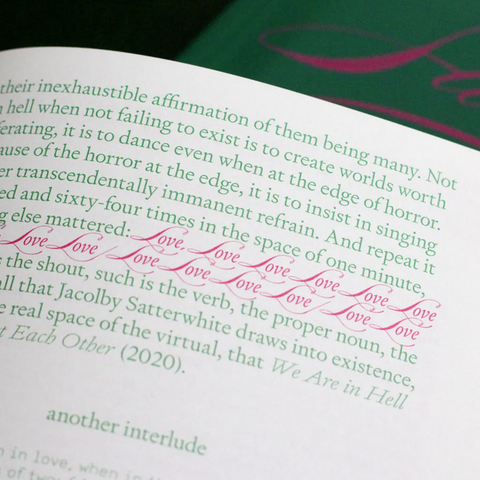 their inexhaustible affirmation of them being many. Not
hell when not failing to exist is to create worlds worth
erating, it is to dance even when at the edge of horror.
ause of the horror at the edge, it is to insist in singing
er transcendentally immanent refrain. And repeat it
ed and sixty-four times in the space of one minute,
g else mattered: Love Love Love Love Love Love
Love Love / Love Love Love Love Love / Love Love
the shout, such is the verb, the proper noun, the
all that Jacolby Satterwhite draws into existence,
e real space of the virtual, that We Are in Hell
t Each Other (2020).
another interlude
in love, when in
s of two